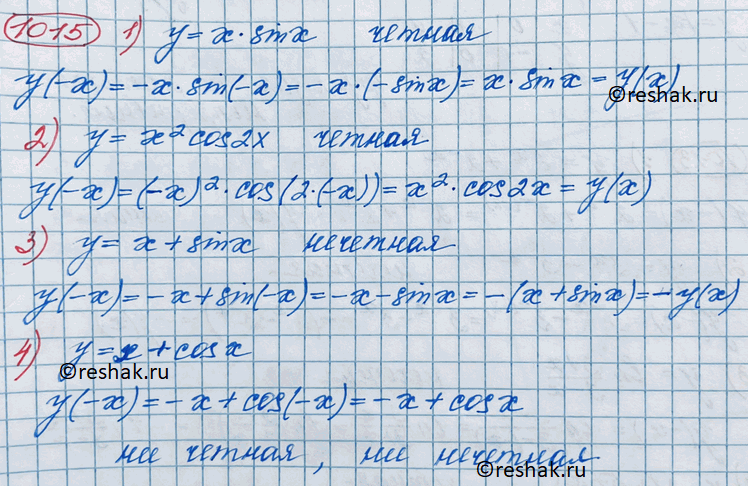 1015 1) y = x · sin x четная
y(-x) = -x · sin(-x) = -x · (-sin x) = x · sin x = y(x)
©reshak.ru
2) y = x² cos 2x четная
y(-x) = (-x)² · cos(2·(-x)) = x² · cos 2x = y(x)
3) y = x + sin x нечетная
y(-x) = -x + sin(-x) = -x - sin x = -(x + sin x) = -y(x)
4) y = x + cos x
©reshak.ru
y(-x) = -x + cos(-x) = -x + cos x
ни четная, ни нечетная
©reshak.ru